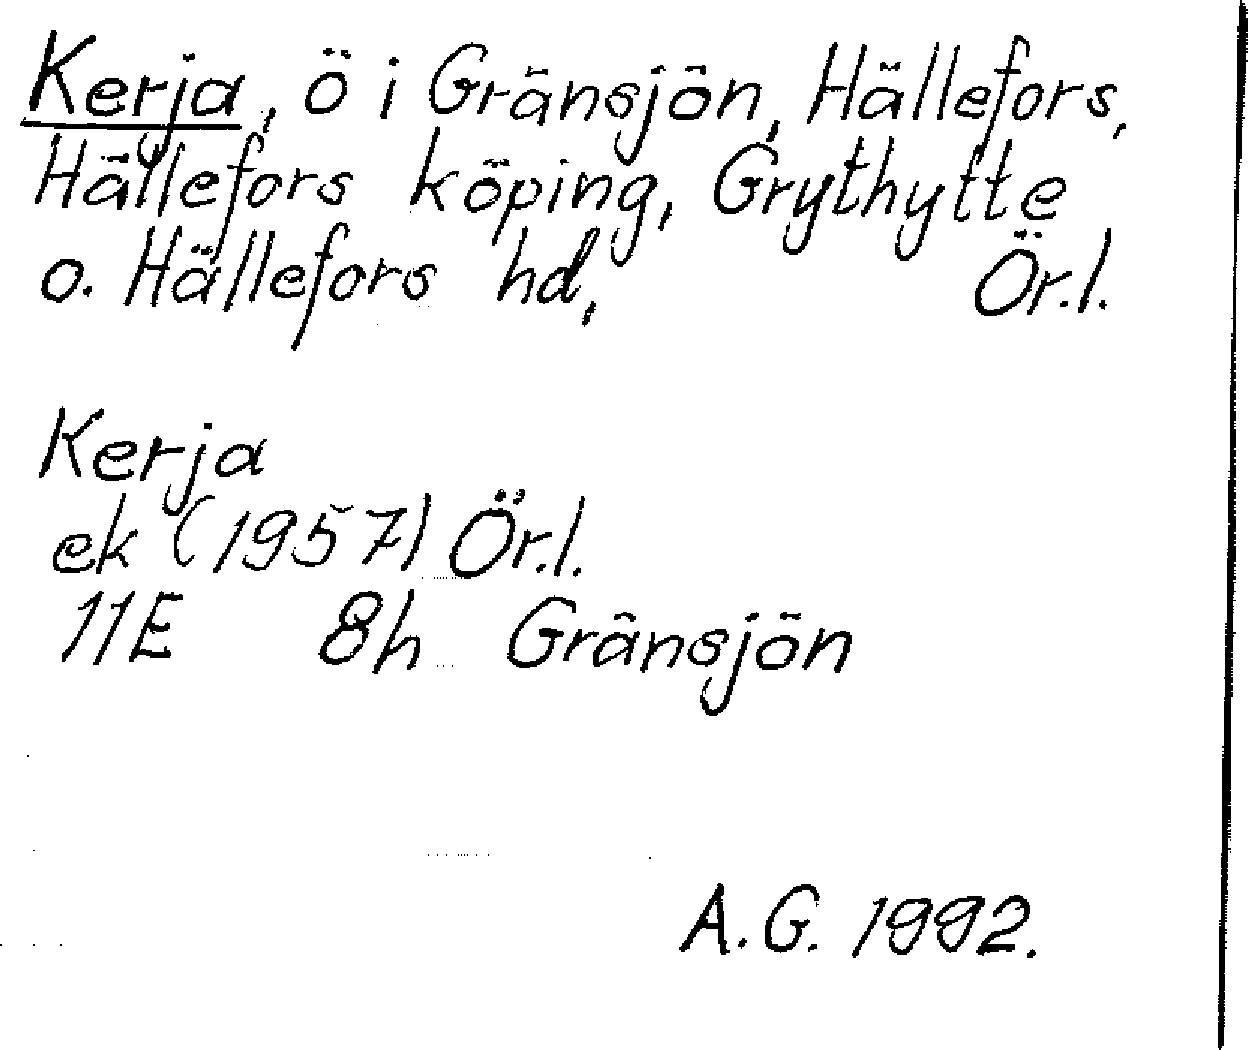 Kerja, ö i Gränsjön, Hällefors,
Hällefors köping, Grythytte
o. Hällefors hd, Ör.l.
Kerja
ek (1957) Ör.l.
11E 8h Gränsjön
A.G. 1992.